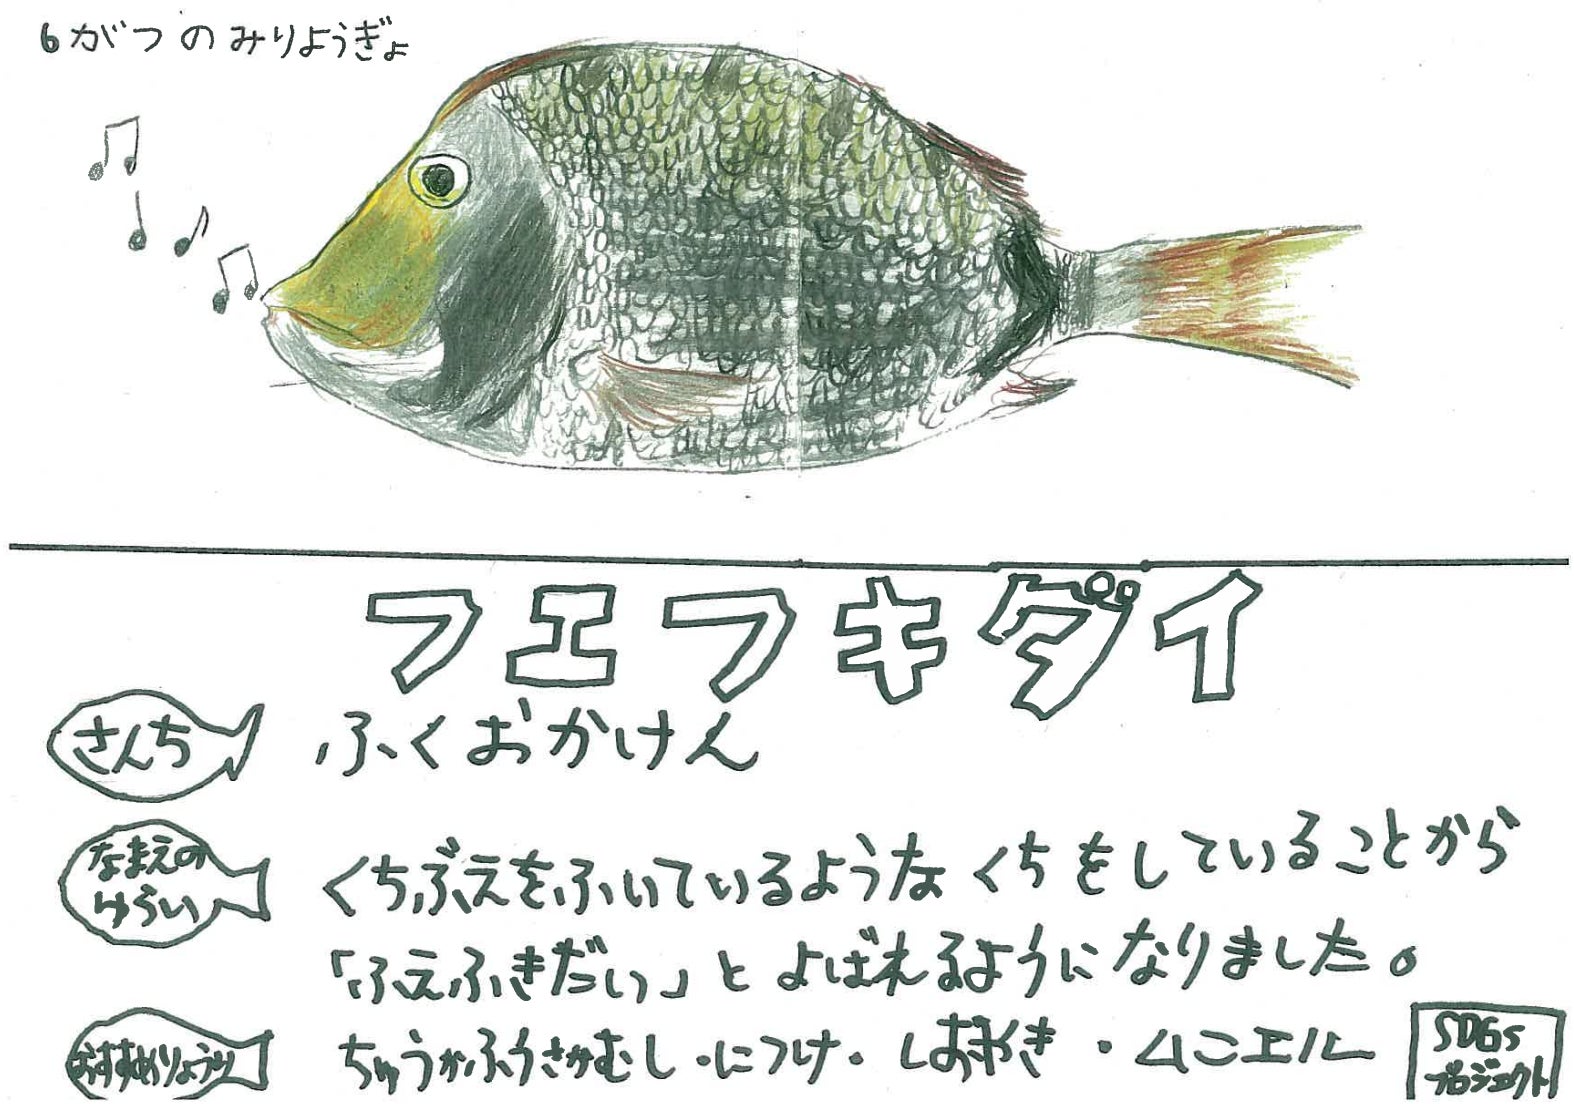 6がつのみりようぎょ
フエフキダイ
さんち
ふくおかけん
なまえの
ゆらい
くちぶえをふいているようなくちをしていることから
「ふえふきだい」とよばれるようになりました。
おすすめりょうり
ちゅうかふうさかむし・につけ・しおやき・ムニエル
SDGs
プロジェクト